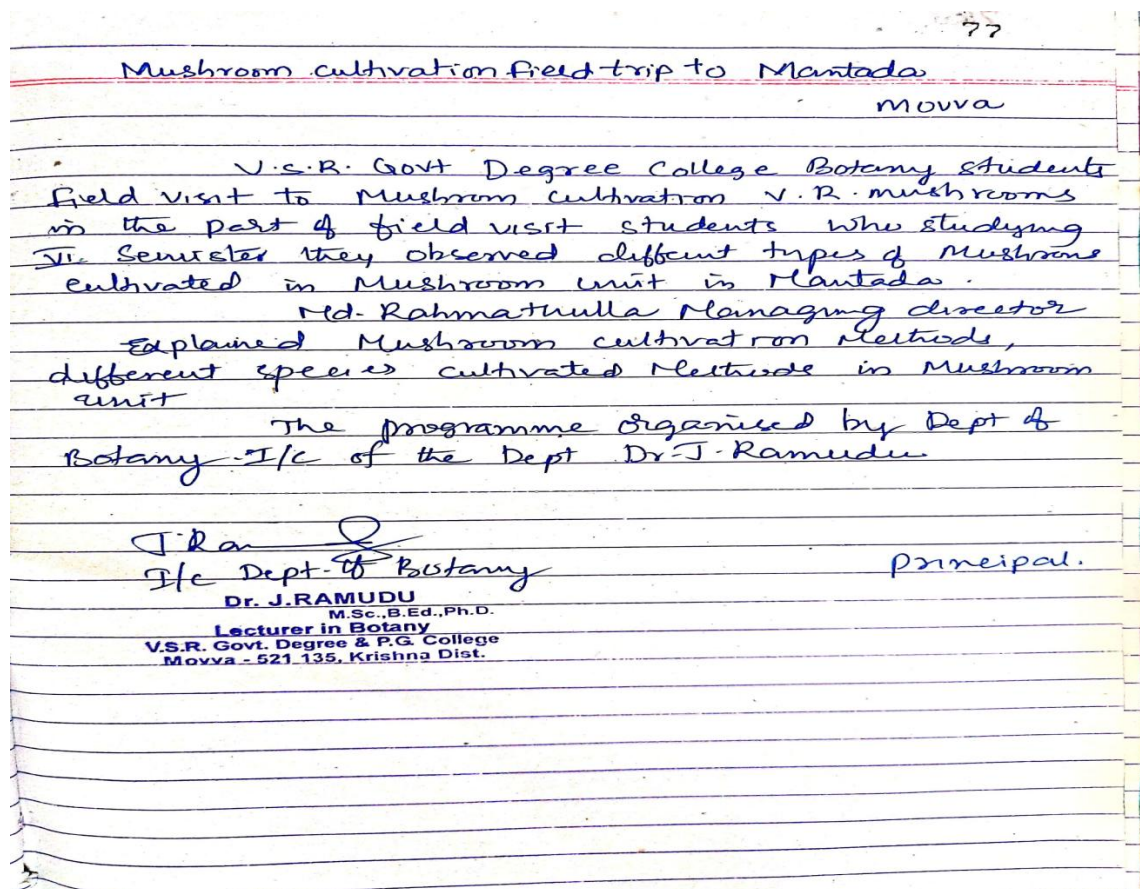 77
Mushroom cultivation field trip to Mantada
Movva
V.S.R. Govt Degree College Botany students
field visit to Mushrom cultivation V.R. mushrooms
in the part of field visit students who studying
VI. Semister they observed diffeunt types of Mushrooms
cultivated in Mushroom unit in Mantada.
Md. Rahmathulla Managing director
Explained Mushroom cultivation Methods,
different species cultivated Methods in Mushroom
unit
The programme organised by Dept of
Botany I/C of the Dept Dr. J. Ramudu
I/c Dept. of Botany
Principal.
Dr. J.RAMUDU
M.Sc.,B.Ed.,Ph.D.
Lecturer in Botany
V.S.R. Govt. Degree & P.G. College
Movva - 521 135, Krishna Dist.